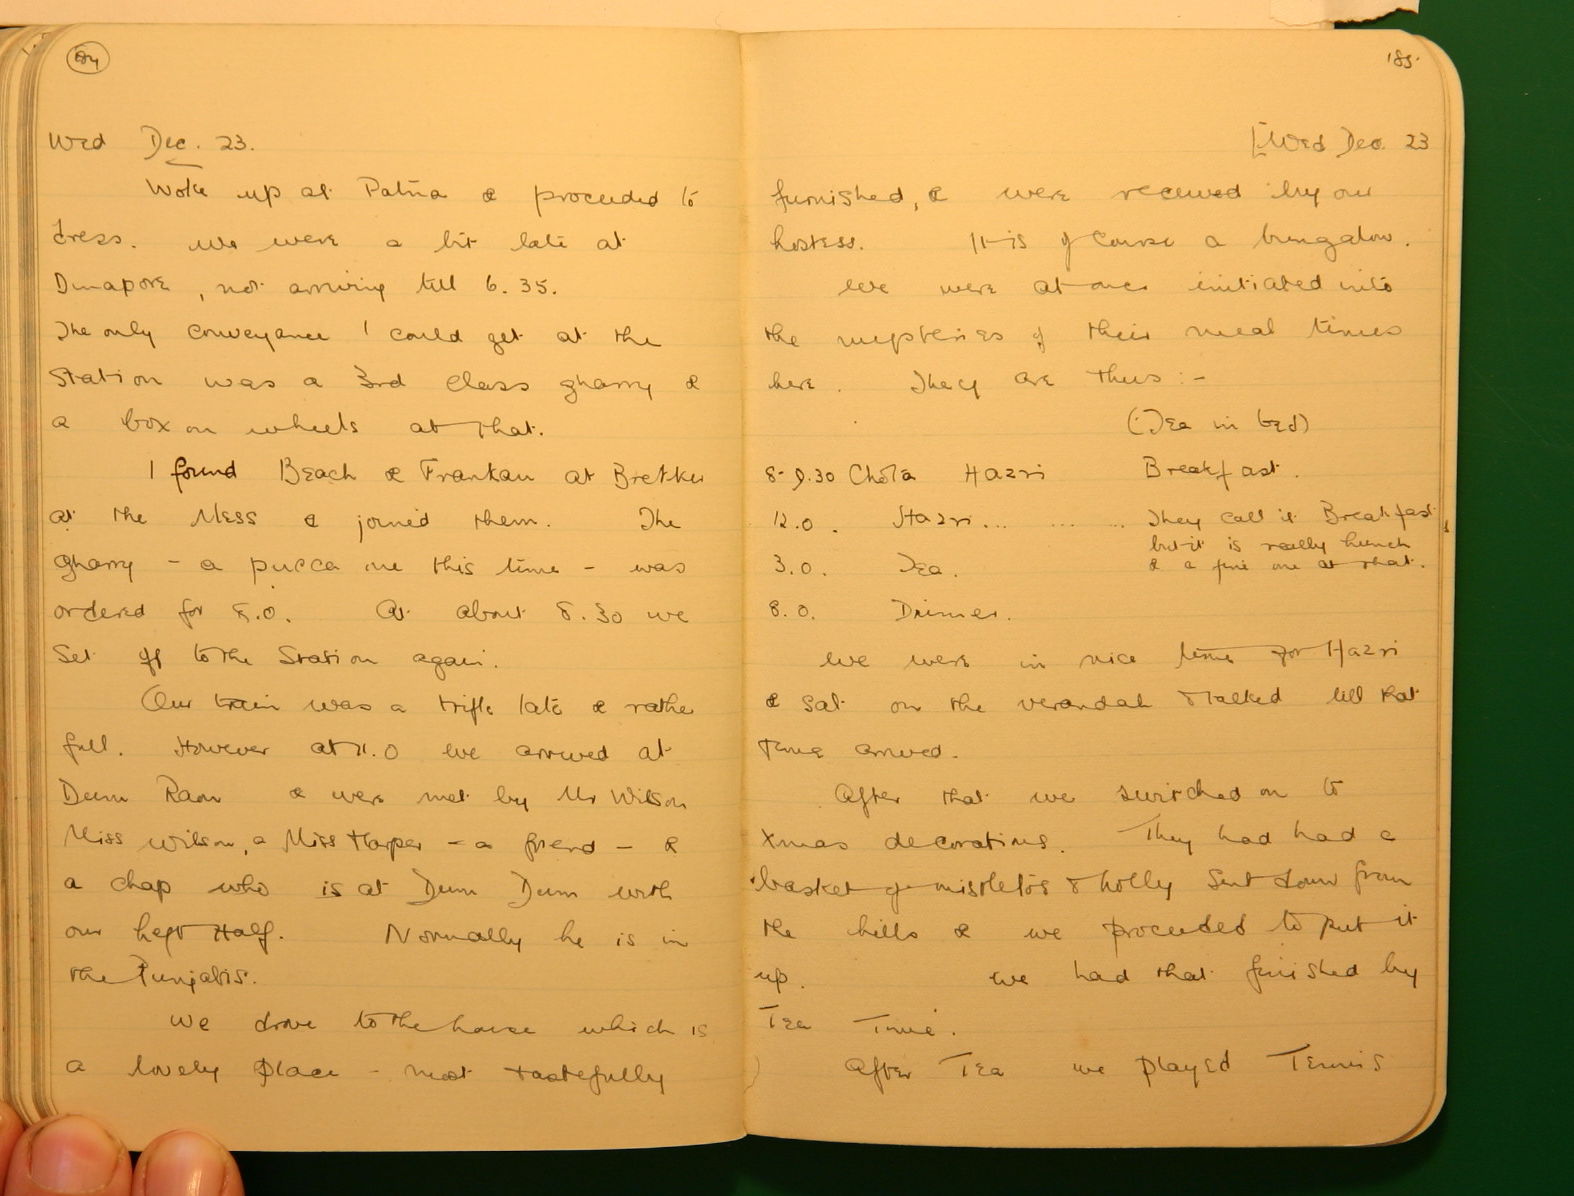 184
Wed Dec. 23.
Woke up at Patna & proceeded to
dress. We were a bit late at
Dinapore, not arriving till 6.35.
The only conveyance I could get at the
Station was a 3rd class gharry &
a box on wheels at that.
I found Beach & Frankau at Brekker
at the Mess & joined them. The
gharry - a pucca one this time - was
ordered for 8.0. At about 8.30 we
set off to the Station again.
Our train was a trifle late & rather
full. However at 11.0 we arrived at
Dum Raon & were met by Mr Wilson
Miss Wilson, a Miss Harper - a friend - &
a chap who is at Dum Dum with
our Left Half. Normally he is in
the Punjabis.
We drove to the house which is
a lovely place - most tastefully
185.
[Wed Dec. 23
furnished, & were received by our
hostess. It is of course a bungalow.
We were at once initiated into
the mysteries of their meal times
here. They are thus:-
(Tea in bed)
8-9.30 Chota Hazri Breakfast.
12.0. Hazri... ... ... They call it Breakfast
but it is really lunch
& a fine one at that.
3.0. Tea.
8.0. Dinner.
We were in nice time for Hazri
& sat on the verandah & talked till that
time arrived.
After that we switched on to
Xmas decorations. They had had a
basket of mistletoe & holly sent down from
the hills & we proceeded to put it
up. We had that finished by
Tea Time.
After Tea we played Tennis